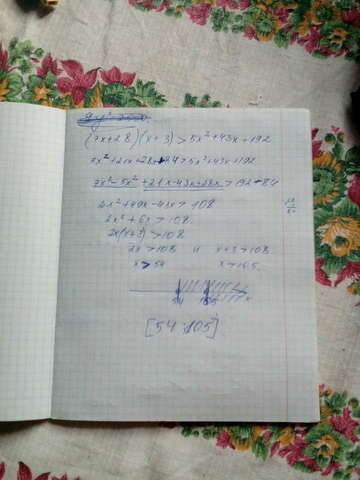 (7x+28)(x+3)>5x²+43x+192
7x²+21x+28x+84>5x²+43x+192
7x²-5x²+21x-43x+28x>192-84
2x²+49x-43x>108
2x²+6x>108
2x(x+3)>108
2x>108 и x+3>108
x>54 x>105
54 105
[54;105]